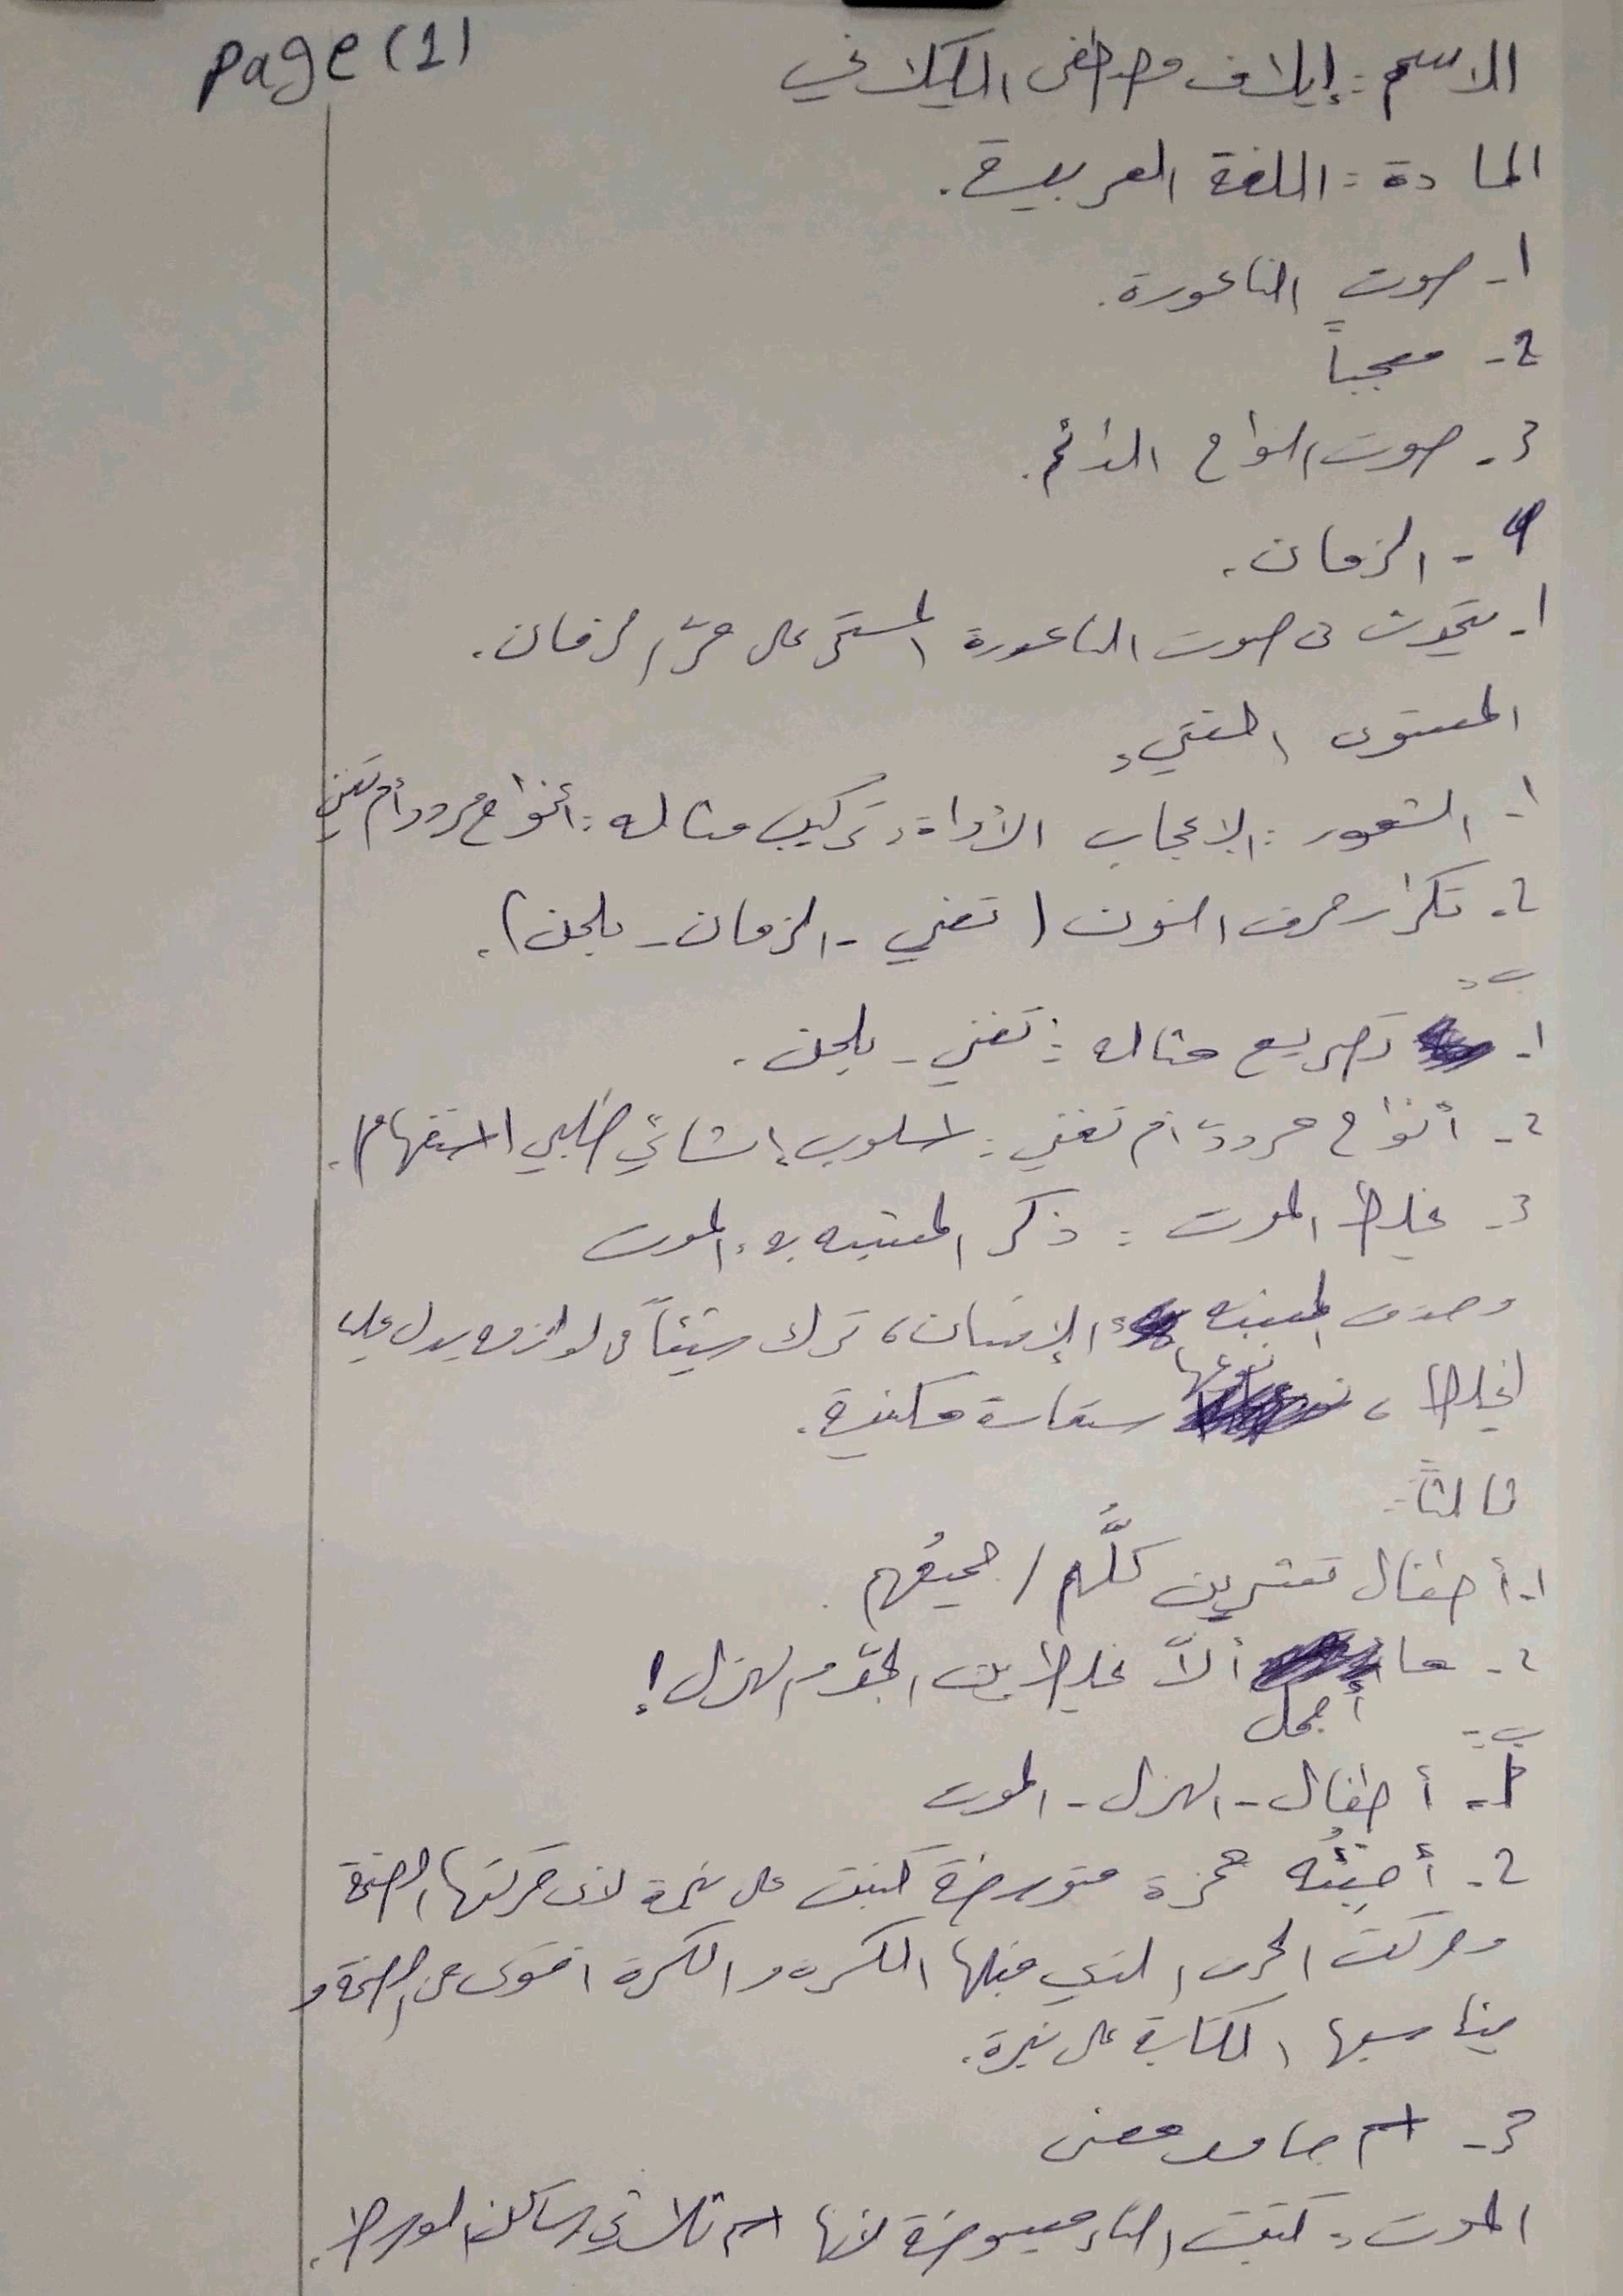 page (1)
الاسم : إيلاف مصطفى الكيلاني
المادة : اللغة العربية.
1- صوت الناعورة.
2- معجباً
3- صوت النواح الدائم.
4- الزمان.
1- يتحدث عن صوت الناعورة المستمر على مرّ الزمان.
المستوى الفني:
1- الشعور : الإعجاب الأداة: تركيب مثاله : أنواح مردود أم تغني
2- تكرار حرف النون ( تغني - الزمان - بلحن ).
ب:
1- تصريع مثاله : تغني - بلحن.
2- أنواح مردودٌ أم تغني : اسلوب إنشائي طلبي استفهام.
3- غليظ الموت : ذكر المشبه به: الموت
وحذف المشبه به: الإنسان، ترك شيئاً من لوازمه يدل عليه
الغليظ، نوعها ستعارة مكنية.
ثالثاً:
1- أطفال تشرين كلُّهم / جميعُهم.
2- ما أجمل ألاّ غليظ بين الجدّ والهزل!
ب:
1- أطفال - الهزل - الموت
2- أجيئُه همزة متوسطة كتبت على نبرة لأن حركتها الضمة
وحركت الحرف التي قبلها الكسره والكسرة اقوى من الضمة و
يناسبها الكتابة على نبرة.
3- اسم جامد معنى
الموت : كتبت التاء مبسوطة لأنها اسم ثلاثي ساكن الوسط.